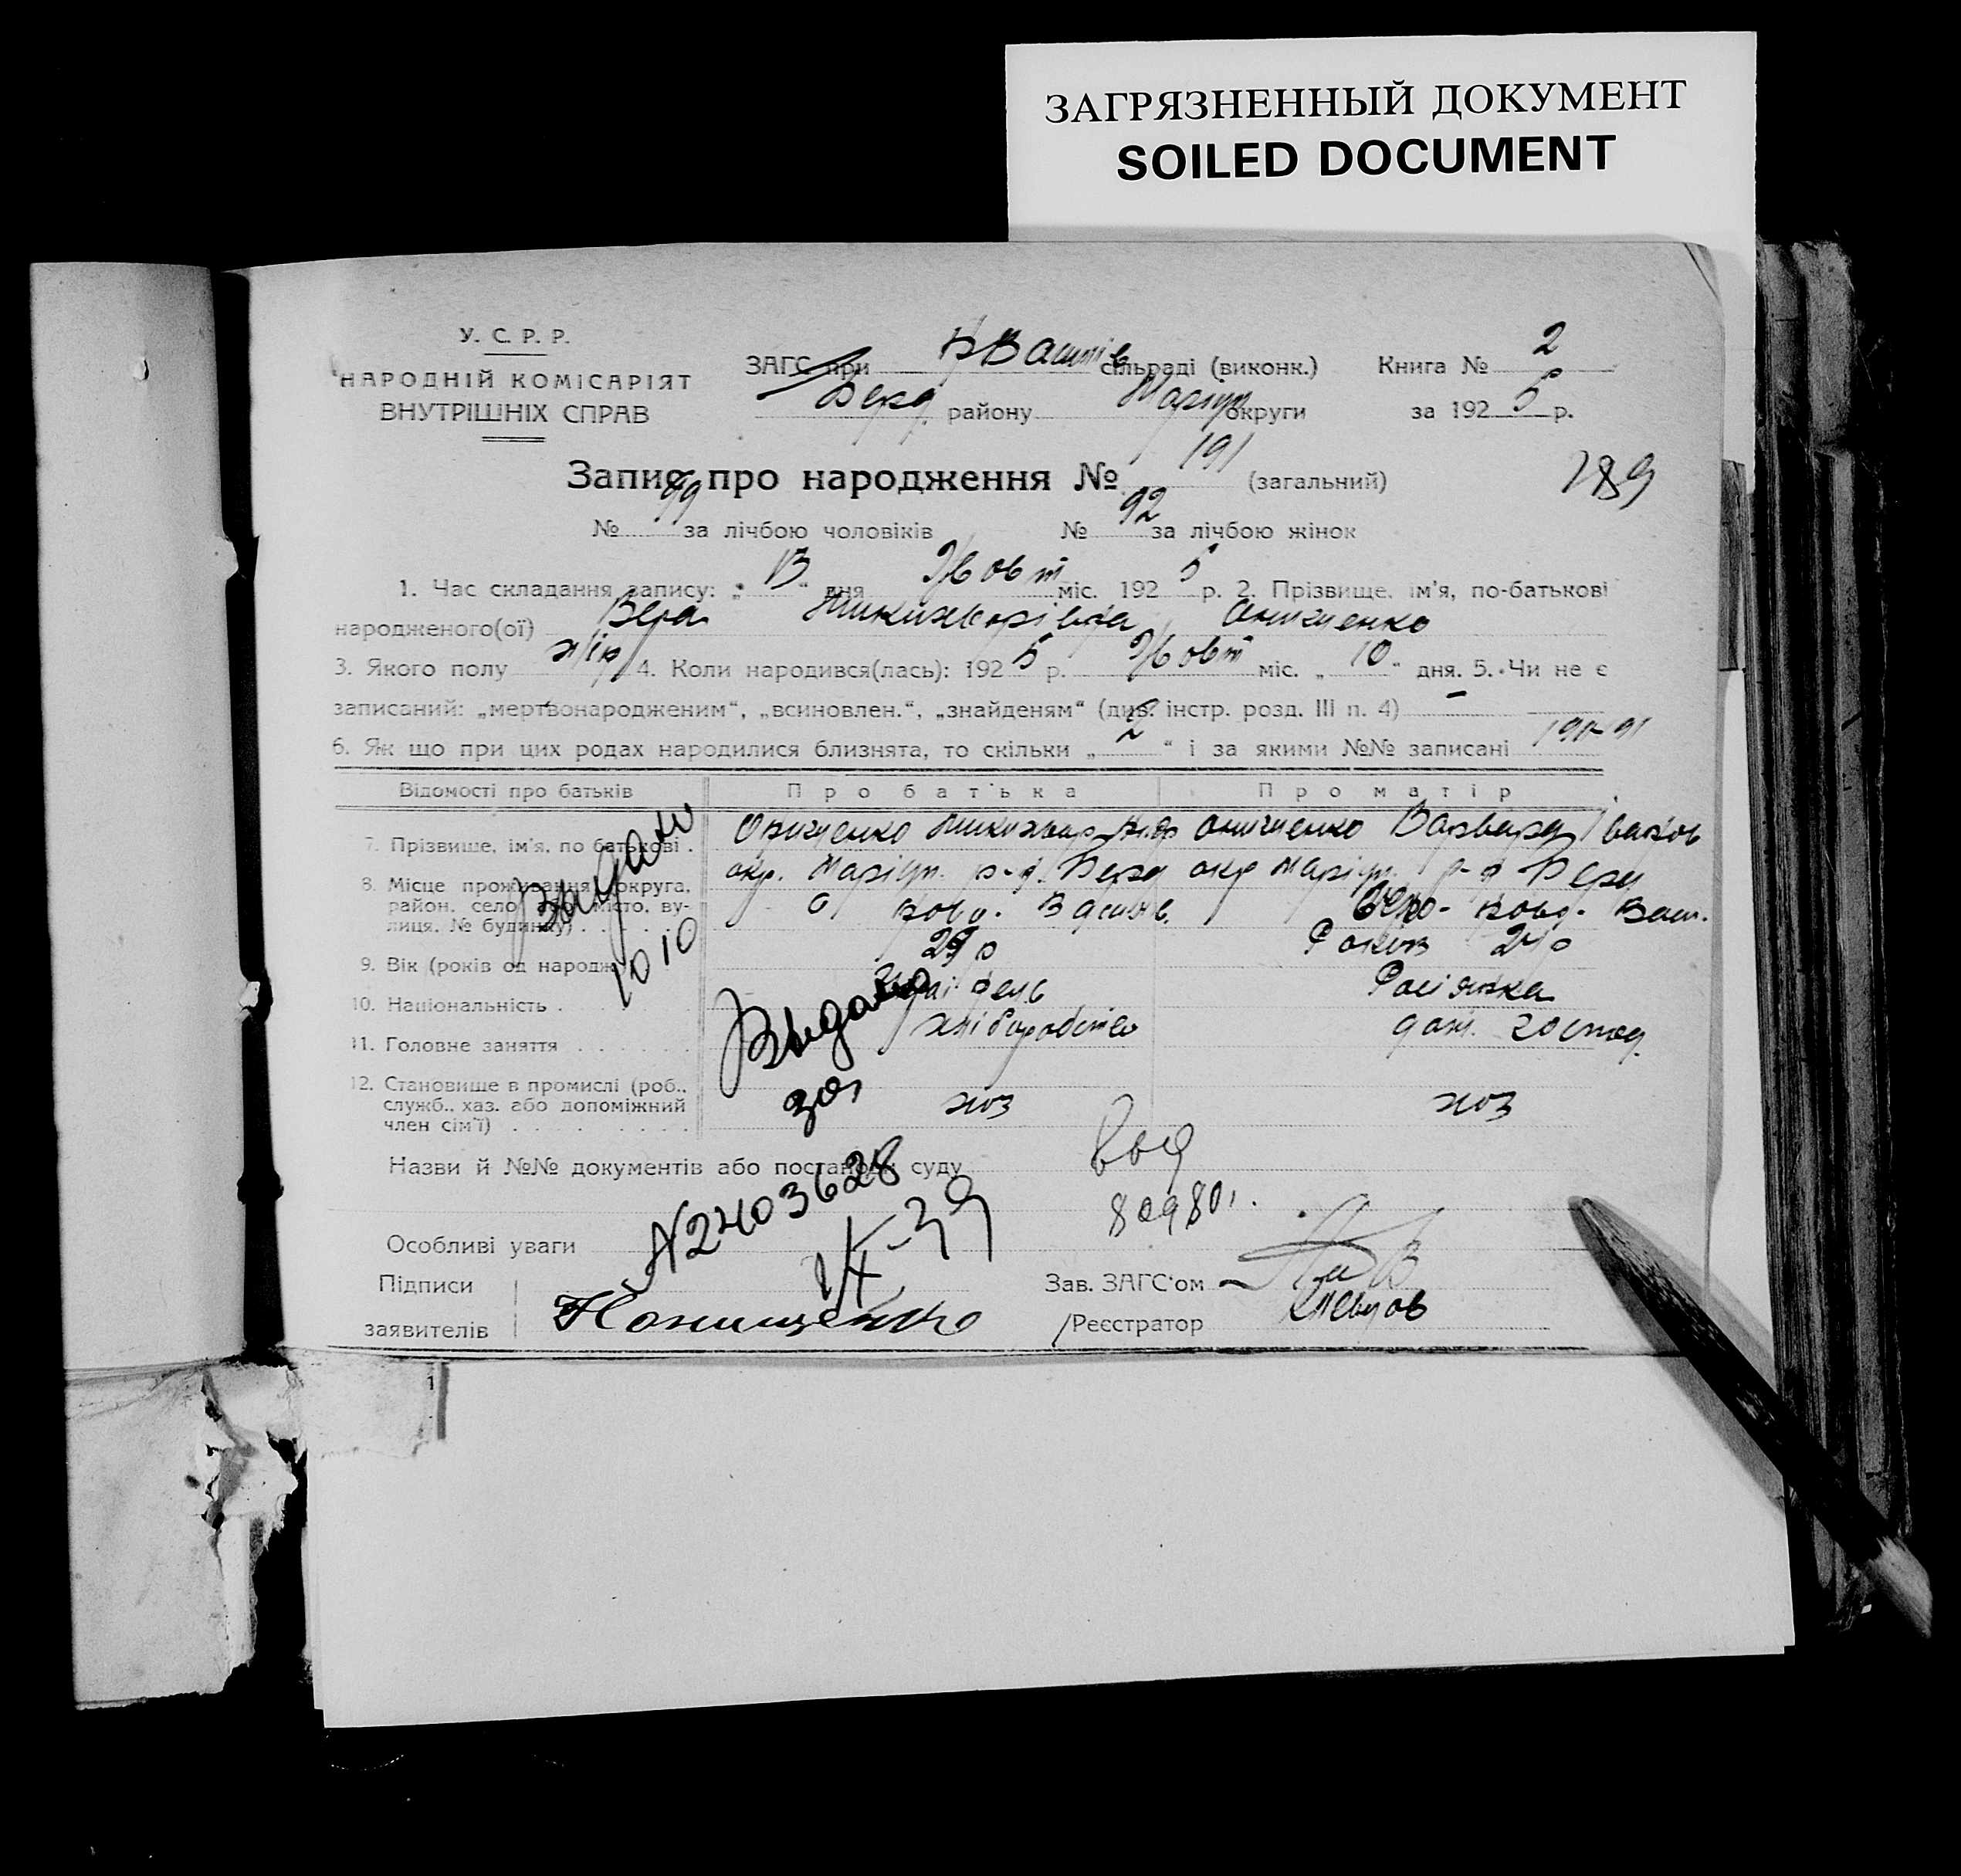 ЗАГРЯЗНЕННЫЙ ДОКУМЕНТ
SOILED DOCUMENT
У. С. Р. Р.
НАРОДНІЙ КОМІСАРІЯТ
ВНУТРІШНІХ СПРАВ
ЗАГС при сільраді (виконк.)
Берд. району Маріуп округи
Книга № 2
за 1925 р.
Запис про народження № 191 (загальний)
189
№ 99 за лічбою чоловіків № 92 за лічбою жінок
1. Час складання запису: „13“ дня Жовт міс. 1925 р. 2. Прізвище, ім'я, по-батькові
народженого(ої) Вера Никихворівна Онищенко
3. Якого полу жін 4. Коли народився(лась): 1925 р. Жовт міс. „10“ дня. 5. Чи не є
записаний: „мертвонародженим“, „всиновлен.“, „знайденям“ (див. інстр. розд. III п. 4) –
6. Як що при цих родах народилися близнята, то скільки „2“ і за якими №№ записані 190-91
Відомості про батьків Про батька Про матір
7. Прізвише, ім'я, по батькові . Онищенко Никихвор Онищенко Варвара Іванов
8. Місце проживання (округа, район, село або місто, вулиця, № будинку) . . . окр. Маріуп. р-д. Берд окр Маріуп. р-д Берд
Ново- Васил.
9. Вік (років од народж.) 29 р Років 24 р
10. Національність . Росіянка
11. Головне заняття . . . . . . хліборобство дом. господ.
12. Становище в промислі (роб.,
служб., хаз. або допоміжний
член сім'ї) . . . . . . . . хоз хоз
Выдано
1010
Выдано
Назви й №№ документів або постанови суду выд
N2403628
80980
Особливі уваги
Підписи
заявителів Нонищенко
Зав. ЗАГС'ом
Реєстратор